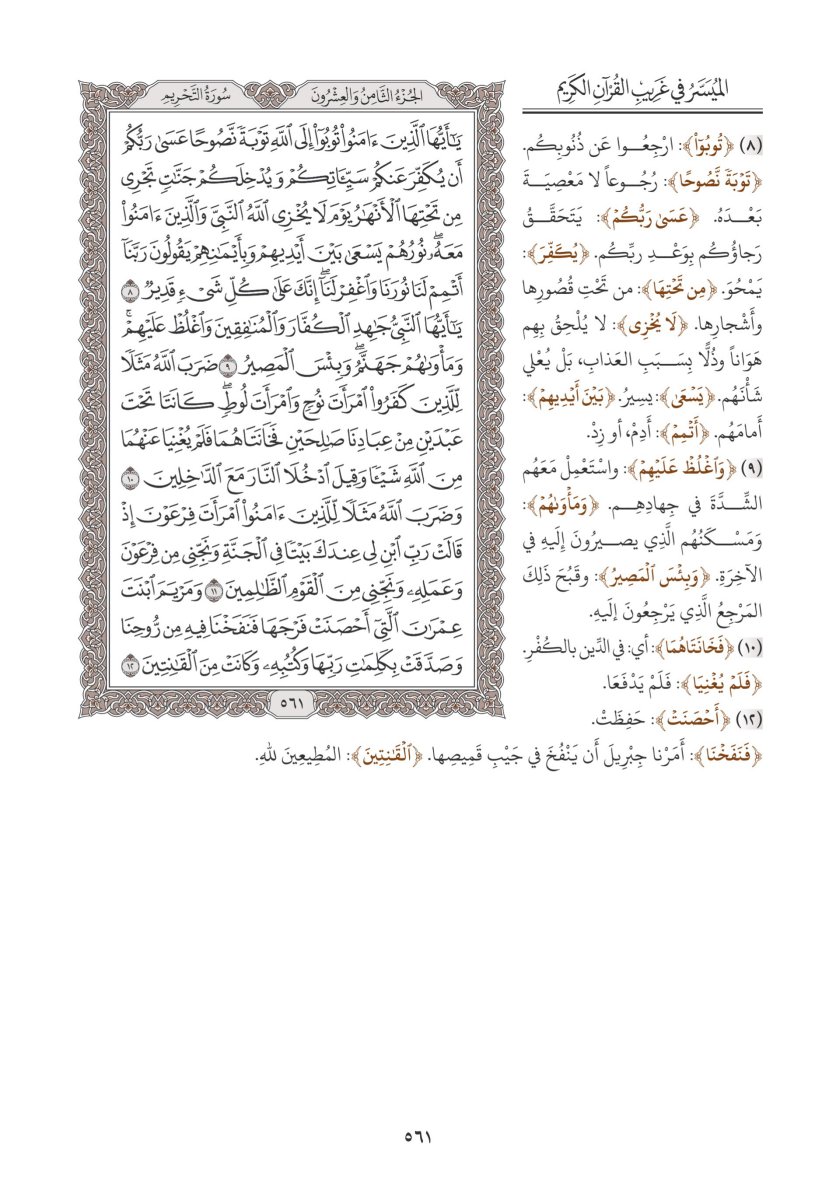 الميسر في غريب القرآن الكريم
(٨) ﴿تُوبُوٓاْ﴾: ارْجِعُوا عَن ذُنُوبِكُم.
﴿تَوْبَةٗ نَّصُوحًا﴾: رُجُوعاً لا مَعْصِيَةَ
بَعْدَهُ. ﴿عَسَىٰ رَبُّكُمْ﴾: يَتَحَقَّقُ
رَجاؤُكُم بِوَعْدِ ربِّكُم. ﴿يُكَفِّرَ﴾:
يَمْحُوَ. ﴿مِن تَحْتِهَا﴾: من تَحْتِ قُصُورِها
وأَشْجارِها. ﴿لَا يُخْزِى﴾: لا يُلْحِقُ بِهِم
هَوَاناً وذُلًّا بِسَبَبِ العَذابِ، بَلْ يُعْلي
شَأْنَهُم. ﴿يَسْعَىٰ﴾: يَسِيرُ. ﴿بَيْنَ أَيْدِيهِمْ﴾:
أَمامَهُم. ﴿أَتْمِمْ﴾: أَدِمْ، أو زِدْ.
(٩) ﴿وَٱغْلُظْ عَلَيْهِمْ﴾: واسْتَعْمِلْ مَعَهُم
الشِّدَّةَ في جِهادِهِم. ﴿وَمَأْوَىٰهُمْ﴾:
وَمَسْكَنُهُم الَّذِي يصيرُونَ إِلَيهِ في
الآخِرَةِ. ﴿وَبِئْسَ ٱلْمَصِيرُ﴾: وقَبُحَ ذَلِكَ
المَرْجِعُ الَّذِي يَرْجِعُونَ إليهِ.
(١٠) ﴿فَخَانَتَاهُمَا﴾: أي: في الدِّين بالكُفْرِ.
﴿فَلَمْ يُغْنِيَا﴾: فَلَمْ يَدْفَعَا.
(١٢) ﴿أَحْصَنَتْ﴾: حَفِظَتْ.
﴿فَنَفَخْنَا﴾: أَمَرْنا جِبْرِيلَ أَن يَنْفُخَ في جَيْبِ قَمِيصِها. ﴿ٱلْقَٰنِتِينَ﴾: المُطِيعِينَ للهِ.
الجزء الثامن والعشرون
سورة التحريم
يَٰٓأَيُّهَا ٱلَّذِينَ ءَامَنُواْ تُوبُوٓاْ إِلَى ٱللَّهِ تَوْبَةٗ نَّصُوحًا عَسَىٰ رَبُّكُمْ
أَن يُكَفِّرَ عَنكُمْ سَيِّـَٔاتِكُمْ وَيُدْخِلَكُمْ جَنَّٰتٖ تَجْرِى
مِن تَحْتِهَا ٱلْأَنْهَٰرُ يَوْمَ لَا يُخْزِى ٱللَّهُ ٱلنَّبِىَّ وَٱلَّذِينَ ءَامَنُواْ
مَعَهُۥۖ نُورُهُمْ يَسْعَىٰ بَيْنَ أَيْدِيهِمْ وَبِأَيْمَٰنِهِمْ يَقُولُونَ رَبَّنَآ
أَتْمِمْ لَنَا نُورَنَا وَٱغْفِرْ لَنَآۖ إِنَّكَ عَلَىٰ كُلِّ شَىْءٖ قَدِيرٞ ٨
يَٰٓأَيُّهَا ٱلنَّبِىُّ جَٰهِدِ ٱلْكُفَّارَ وَٱلْمُنَٰفِقِينَ وَٱغْلُظْ عَلَيْهِمْۚ
وَمَأْوَىٰهُمْ جَهَنَّمُۖ وَبِئْسَ ٱلْمَصِيرُ ٩ ضَرَبَ ٱللَّهُ مَثَلٗا
لِّلَّذِينَ كَفَرُواْ ٱمْرَأَتَ نُوحٖ وَٱمْرَأَتَ لُوطٖۖ كَانَتَا تَحْتَ
عَبْدَيْنِ مِنْ عِبَادِنَا صَٰلِحَيْنِ فَخَانَتَاهُمَا فَلَمْ يُغْنِيَا عَنْهُمَا
مِنَ ٱللَّهِ شَيْـٔٗا وَقِيلَ ٱدْخُلَا ٱلنَّارَ مَعَ ٱلدَّٰخِلِينَ ١٠
وَضَرَبَ ٱللَّهُ مَثَلٗا لِّلَّذِينَ ءَامَنُواْ ٱمْرَأَتَ فِرْعَوْنَ إِذْ
قَالَتْ رَبِّ ٱبْنِ لِى عِندَكَ بَيْتٗا فِى ٱلْجَنَّةِ وَنَجِّنِى مِن فِرْعَوْنَ
وَعَمَلِهِۦ وَنَجِّنِى مِنَ ٱلْقَوْمِ ٱلظَّٰلِمِينَ ١١ وَمَرْيَمَ ٱبْنَتَ
عِمْرَٰنَ ٱلَّتِىٓ أَحْصَنَتْ فَرْجَهَا فَنَفَخْنَا فِيهِ مِن رُّوحِنَا
وَصَدَّقَتْ بِكَلِمَٰتِ رَبِّهَا وَكُتُبِهِۦ وَكَانَتْ مِنَ ٱلْقَٰنِتِينَ ١٢
٥٦١
٥٦١